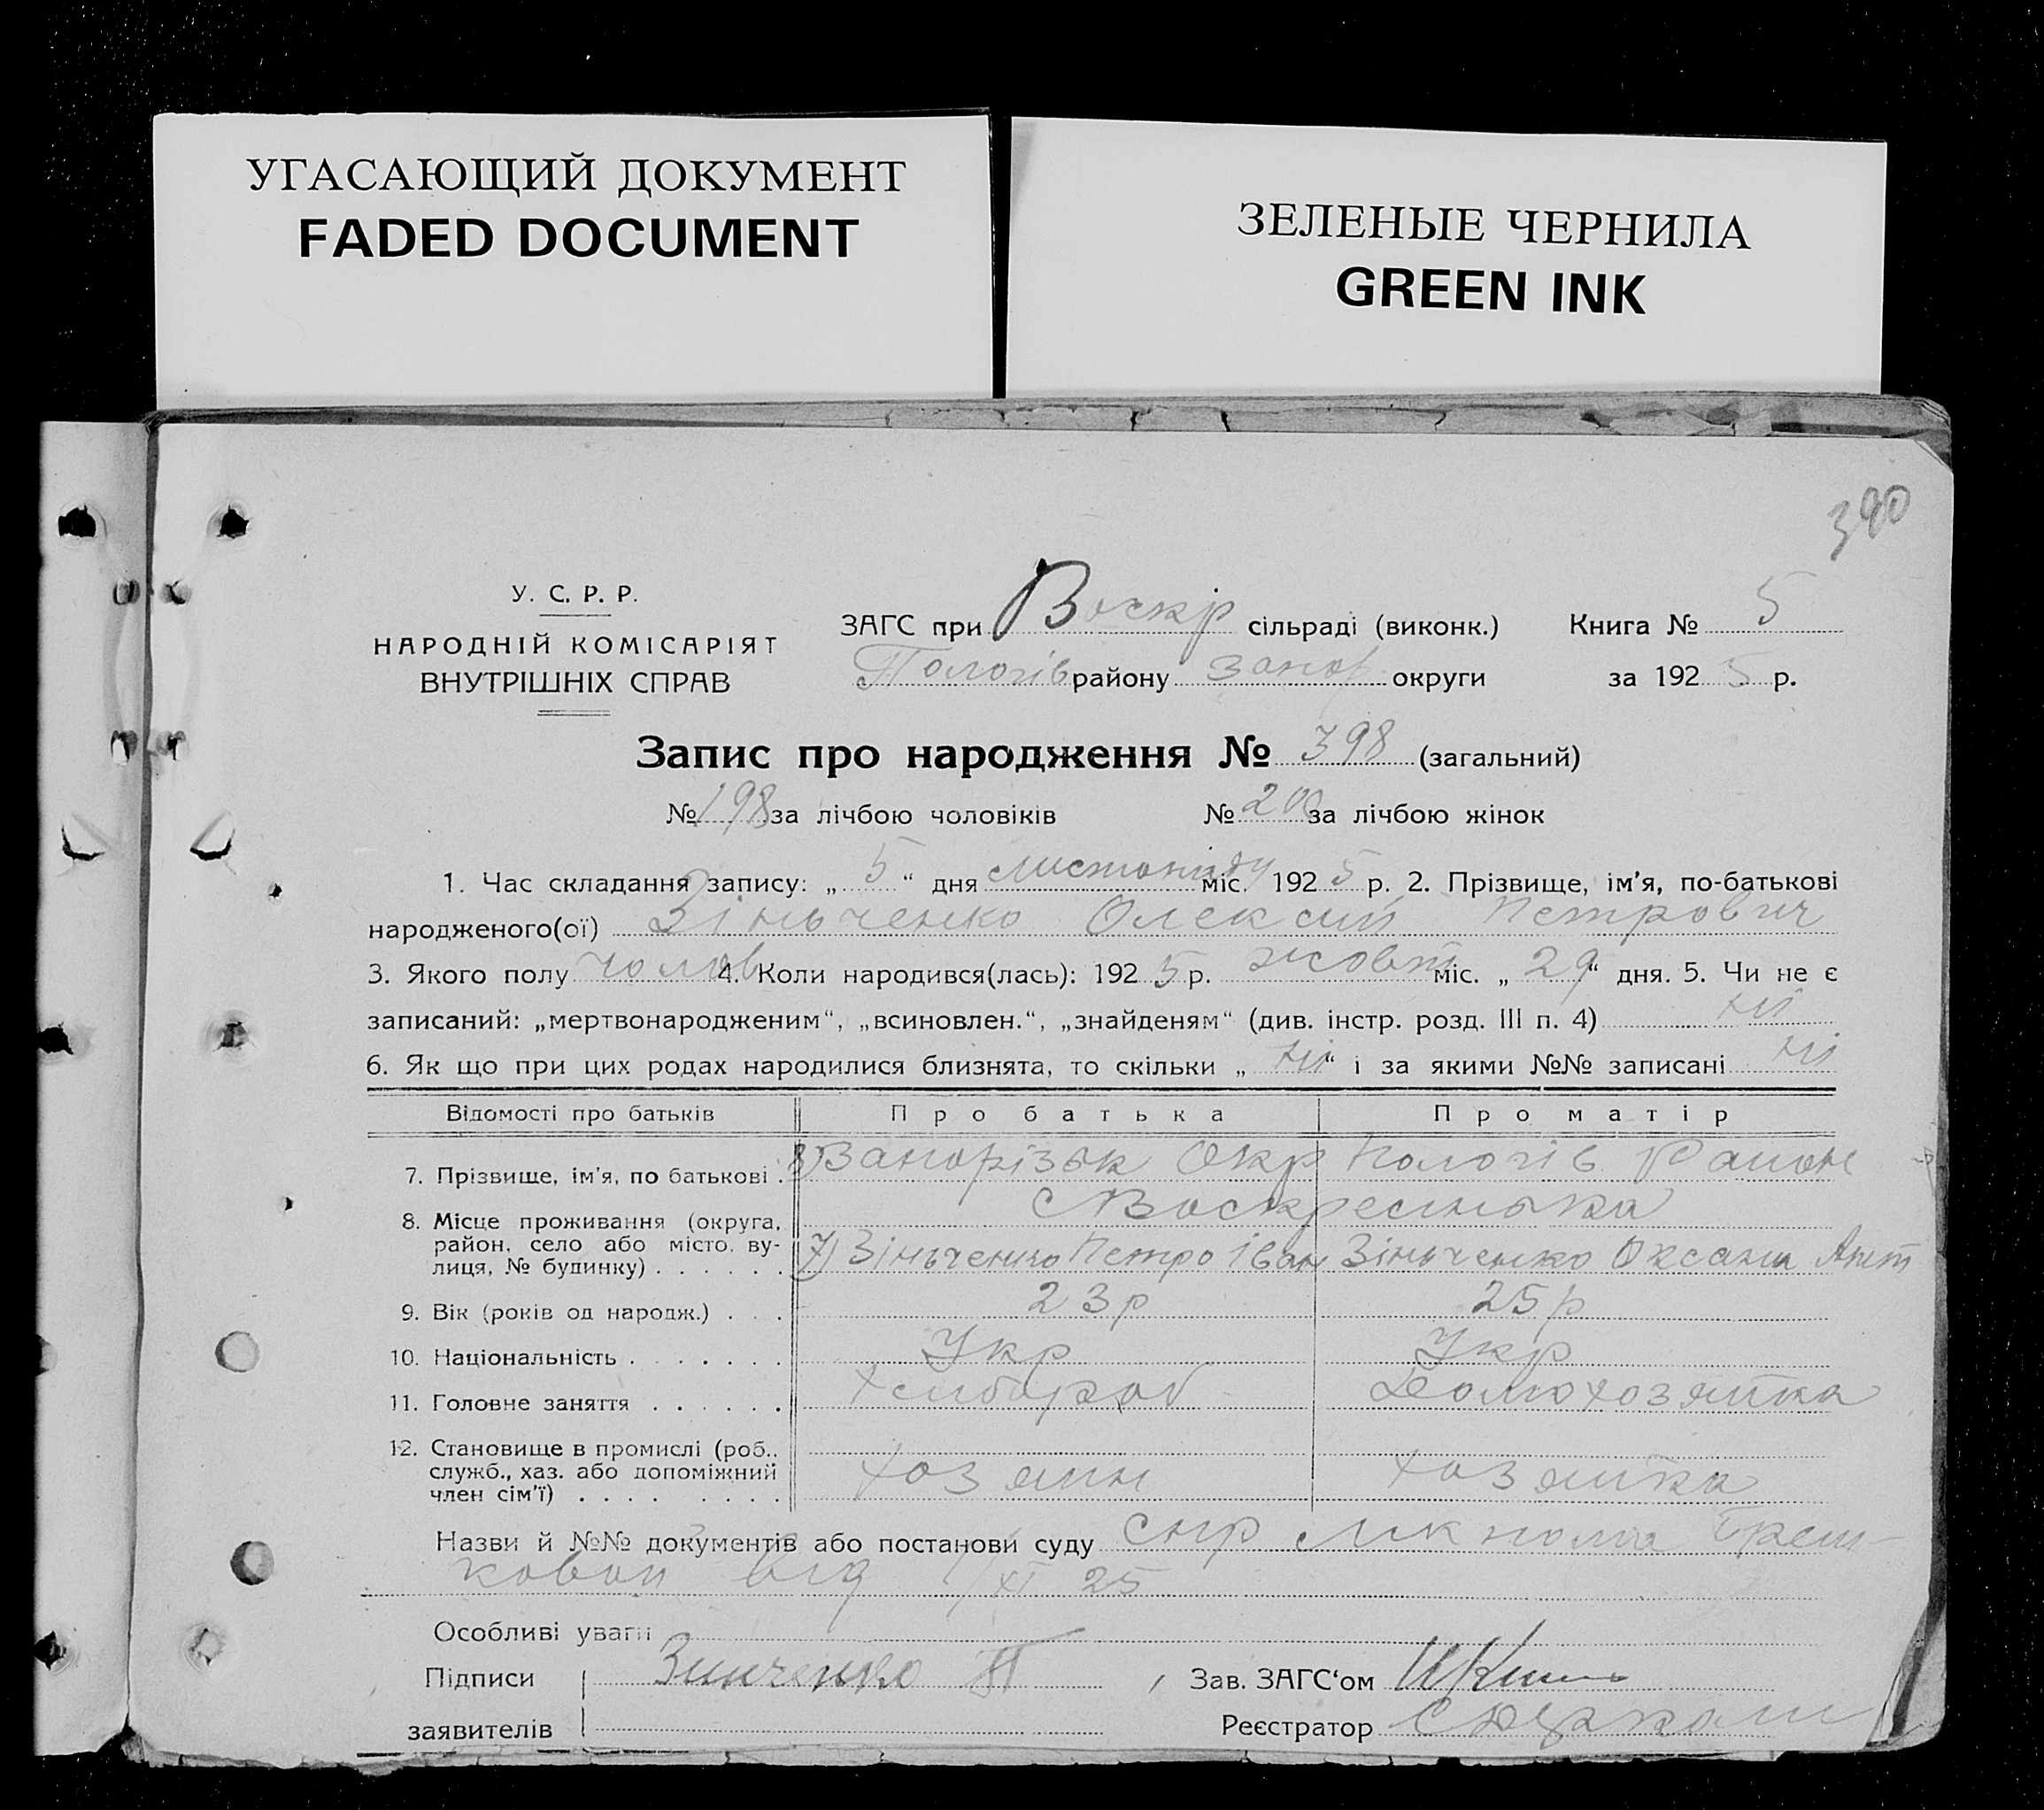 УГАСАЮЩИЙ ДОКУМЕНТ
FADED DOCUMENT
ЗЕЛЕНЫЕ ЧЕРНИЛА
GREEN INK
390
У. С. Р. Р.
НАРОДНІЙ КОМІСАРІЯТ
ВНУТРІШНІХ СПРАВ
ЗАГС при Воскр сільраді (виконк.) Книга № 5
Пологів району Запор округи за 1925 р.
Запис про народження № 398 (загальний)
№ 198 за лічбою чоловіків № 200 за лічбою жінок
1. Час складання запису: „ 5 “ дня листопаду міс. 1925 р. 2. Прізвище, ім'я, по-батькові
народженого(ої) Зіньченко Олексий Петрович
3. Якого полу чолов 4. Коли народився(лась): 1925 р. жовт міс. „ 29 “ дня. 5. Чи не є
записаний: „мертвонародженим“, „всиновлен.“, „знайденям“ (див. інстр. розд. III п. 4) ні
6. Як що при цих родах народилися близнята, то скільки „ ні “ і за якими №№ записані ні
Відомості про батьків Про батька Про матір
7. Прізвище, ім'я, по батькові . 8) Запорізьк Окр Пологів Район
с Воскресінька
8. Місце проживання (округа, район, село або місто, ву-
лиця, № будинку) . . . . . . 7) Зіньченко Петро Іван Зіньченко Оксана Ант
9. Вік (років од народж.) . . . 23 р 25 р
10. Національність . . . . . . . Укр Укр
11. Головне заняття . . . . . . Хлибороб Домохозяйка
12. Становище в промислі (роб.,
служб., хаз. або допоміжний
член сім'ї) . . . . . . . . хозяин хозяйка
Назви й №№ документів або постанови суду
від 1/XI 25
Особливі уваги
Підписи Зинченко П Зав. ЗАГС‘ом
заявителів Реєстратор